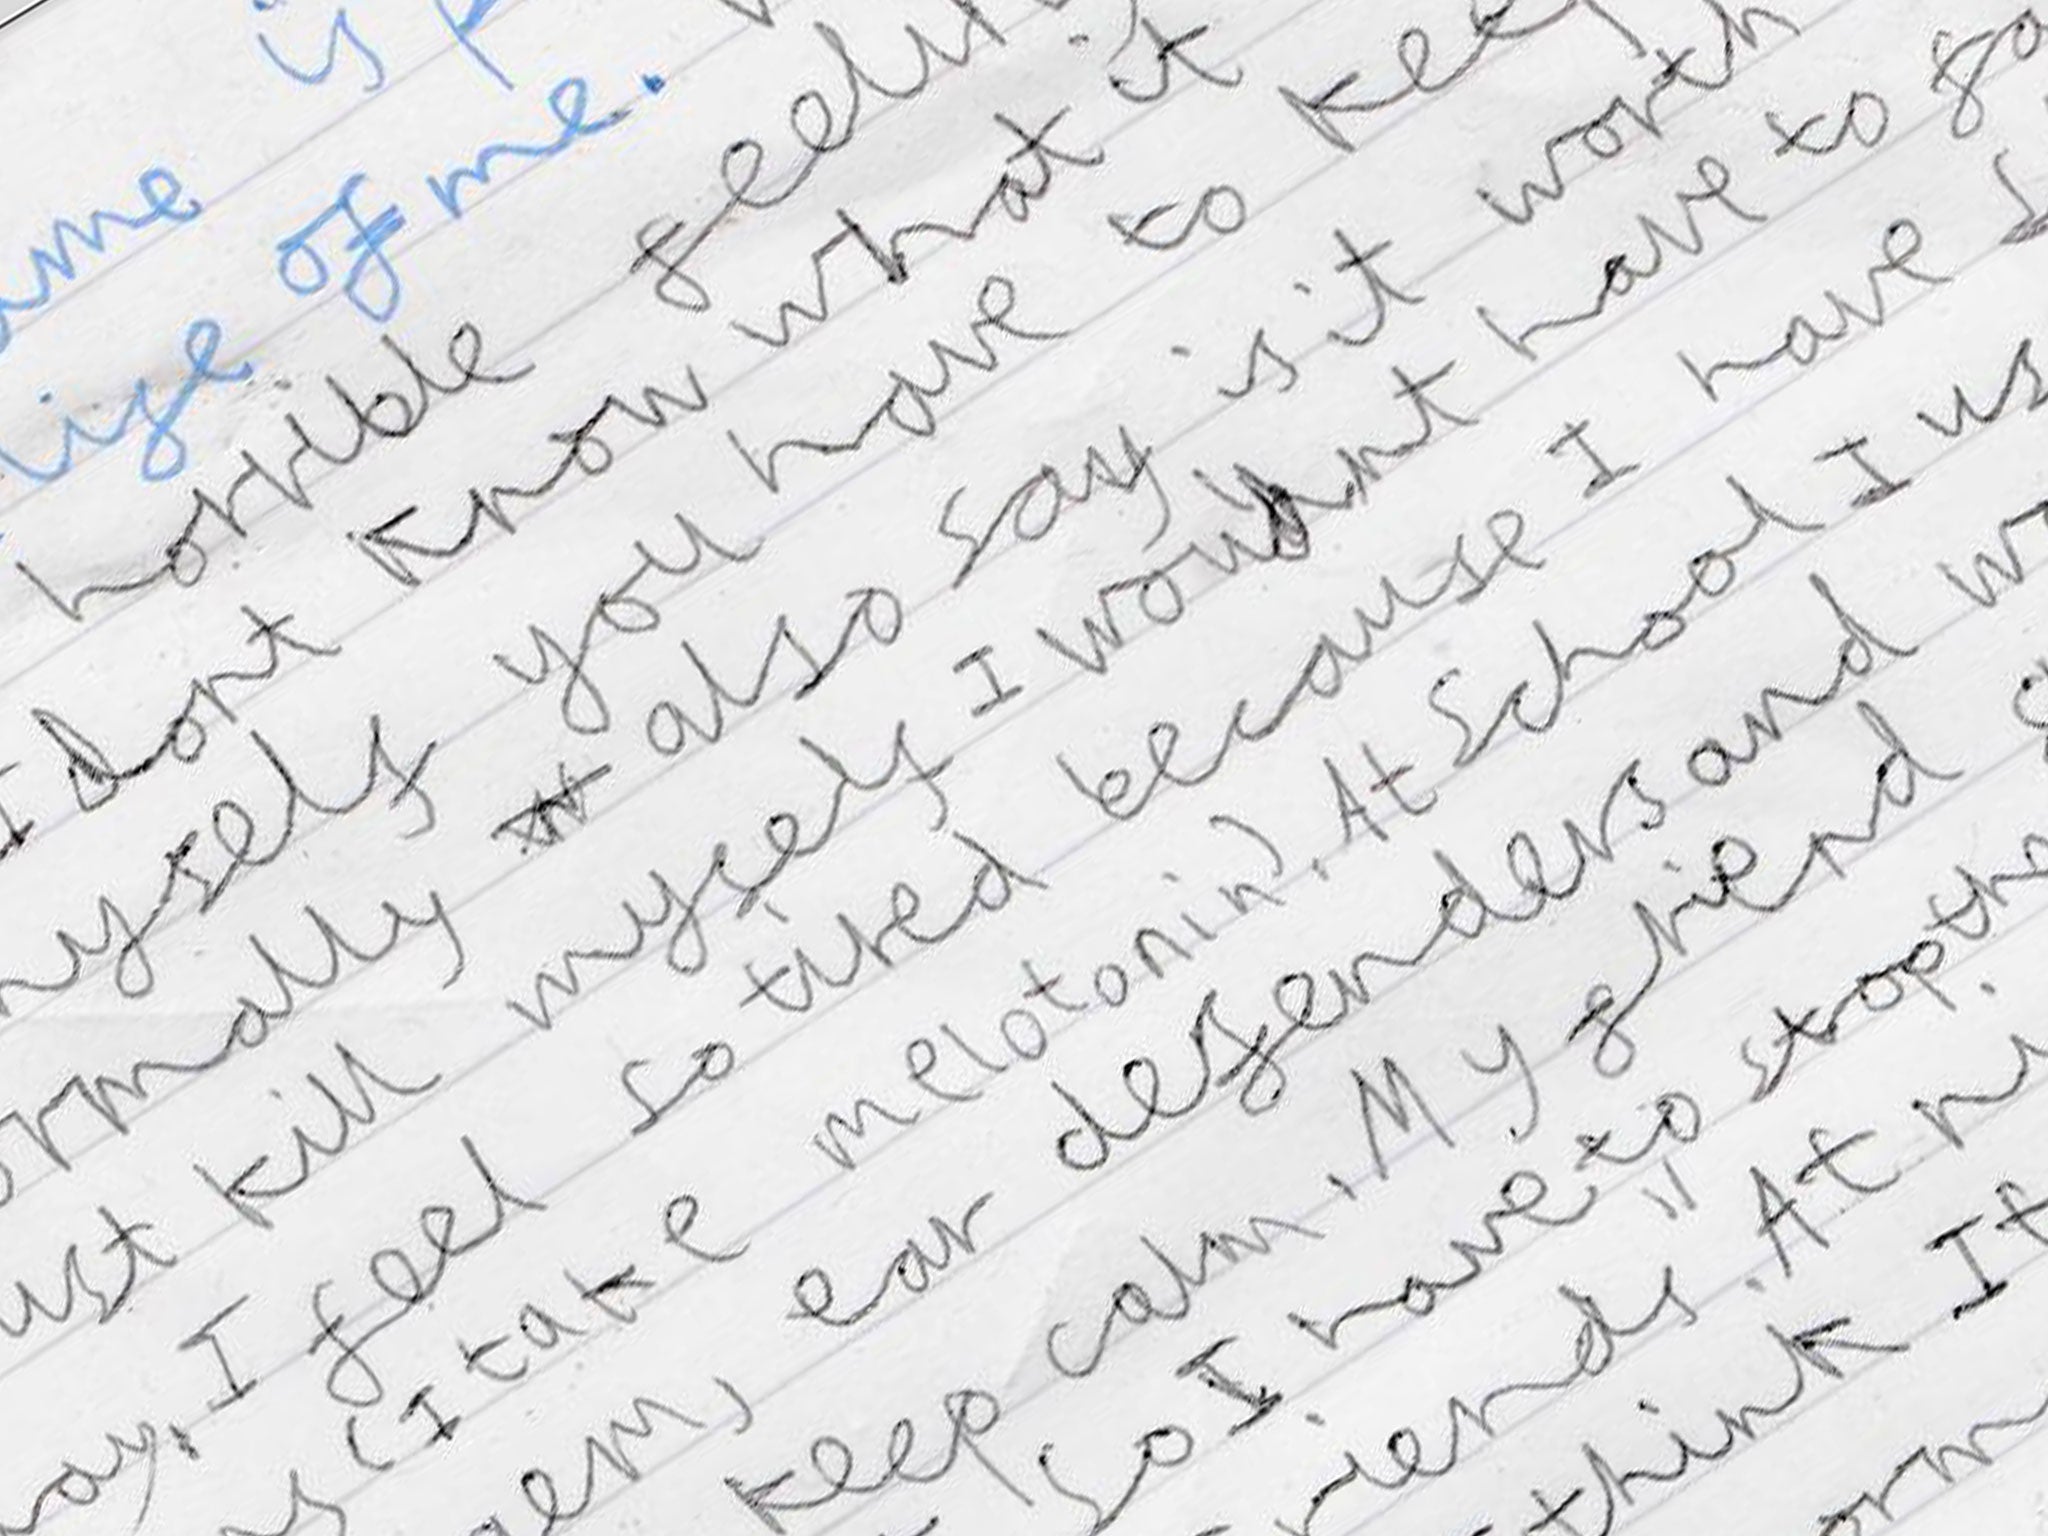 ame is p
life of me.
horrible feeli
I dont know what it
myself you have to kee
ormally also say is it worth
ust kill myself I wouldnt have to go
ay. I feel so tired because I have s
s (I take melotonin). At school I us
em, ear defenders and wr
keep calm. My friend
So I have to stop th
riends." At ni
think It
orm